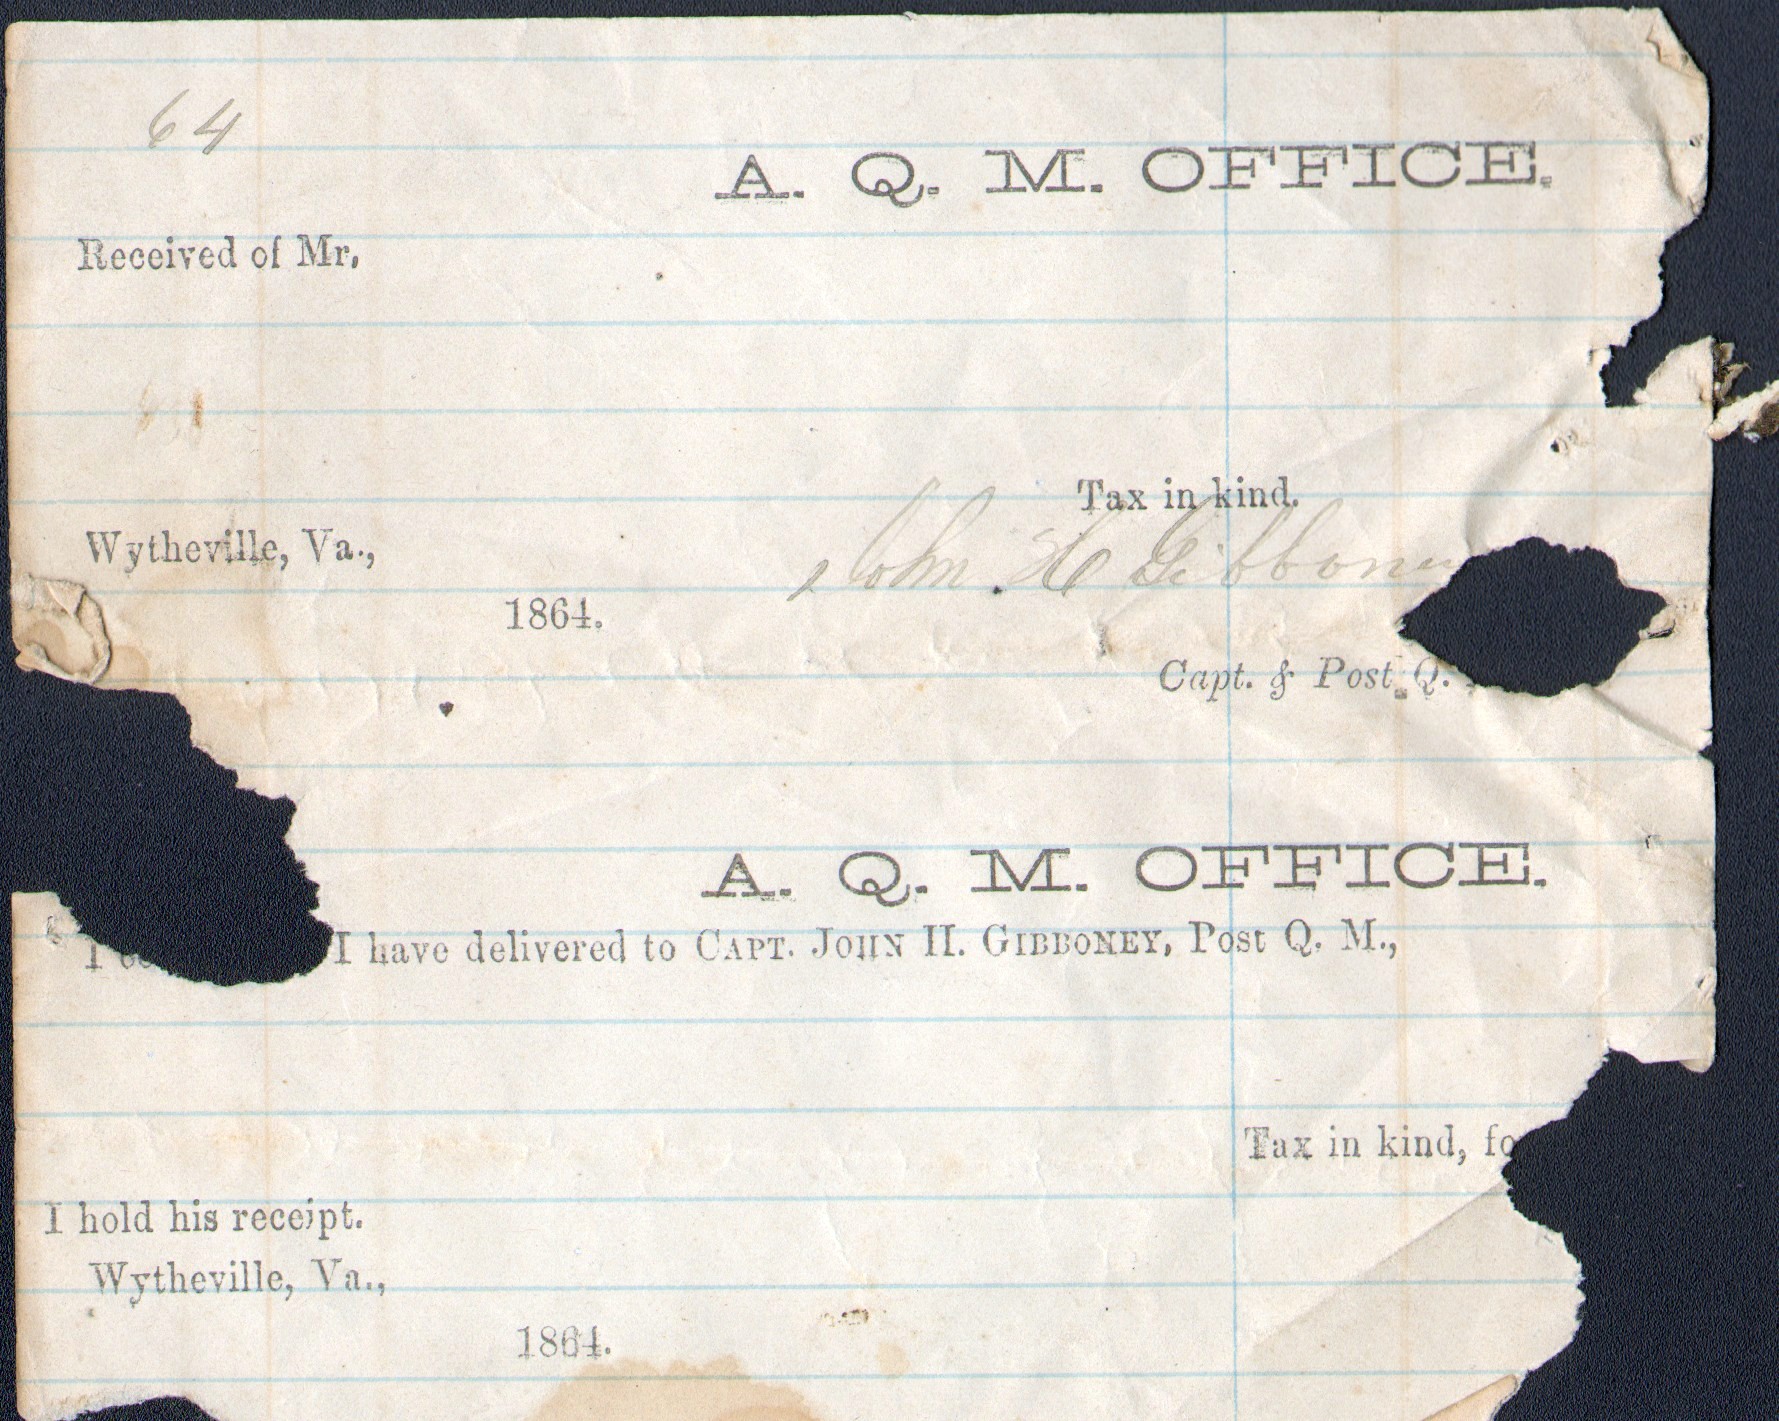 64
A. Q. M. OFFICE.
Received of Mr.
Tax in kind.
Wytheville, Va.,
John H Gibboney
1864.
Capt. & Post Q.
A. Q. M. OFFICE.
I have delivered to CAPT. JOHN H. GIBBONEY, Post Q. M.,
Tax in kind, fo
I hold his receipt.
Wytheville, Va.,
1864.